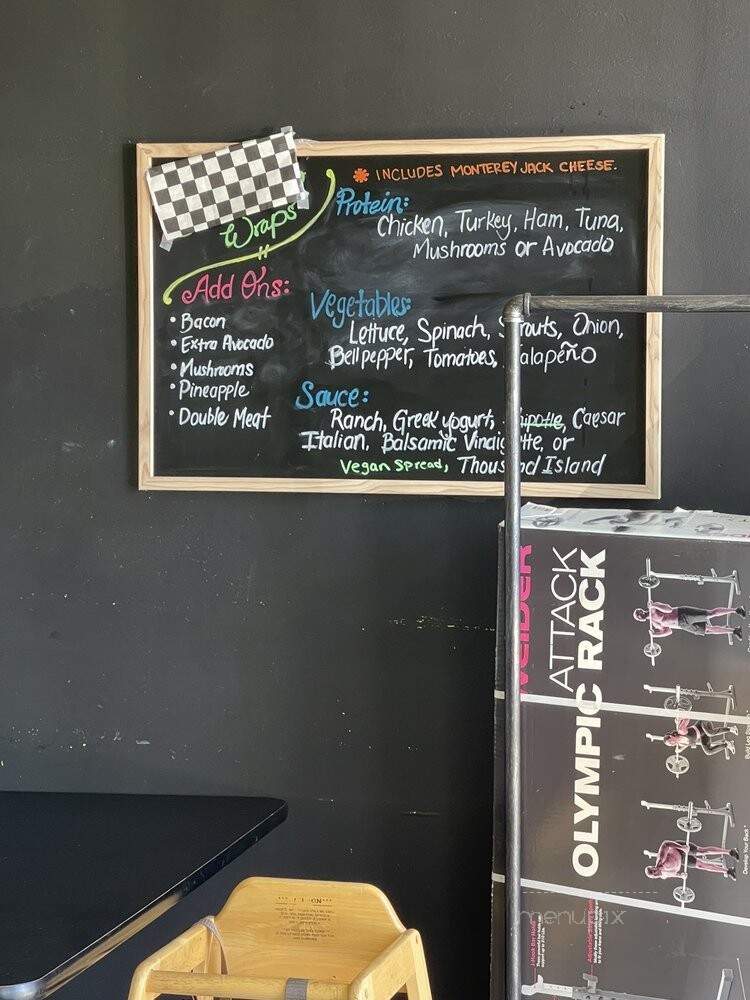 * INCLUDES MONTEREY JACK CHEESE.
Wraps
Protein:
Chicken, Turkey, Ham, Tuna,
Mushrooms or Avocado
Add On's:
• Bacon
• Extra Avocado
• Mushrooms
• Pineapple
• Double Meat
Vegetables:
Lettuce, Spinach, Sprouts, Onion,
Bell pepper, Tomatoes, Jalapeño
Sauce:
Ranch, Greek yogurt, Chipotle, Caesar
Italian, Balsamic Vinaigrette, or
Vegan Spread, Thousand Island
WEIDER
ATTACK
OLYMPIC RACK
Develop Your Back
menupix